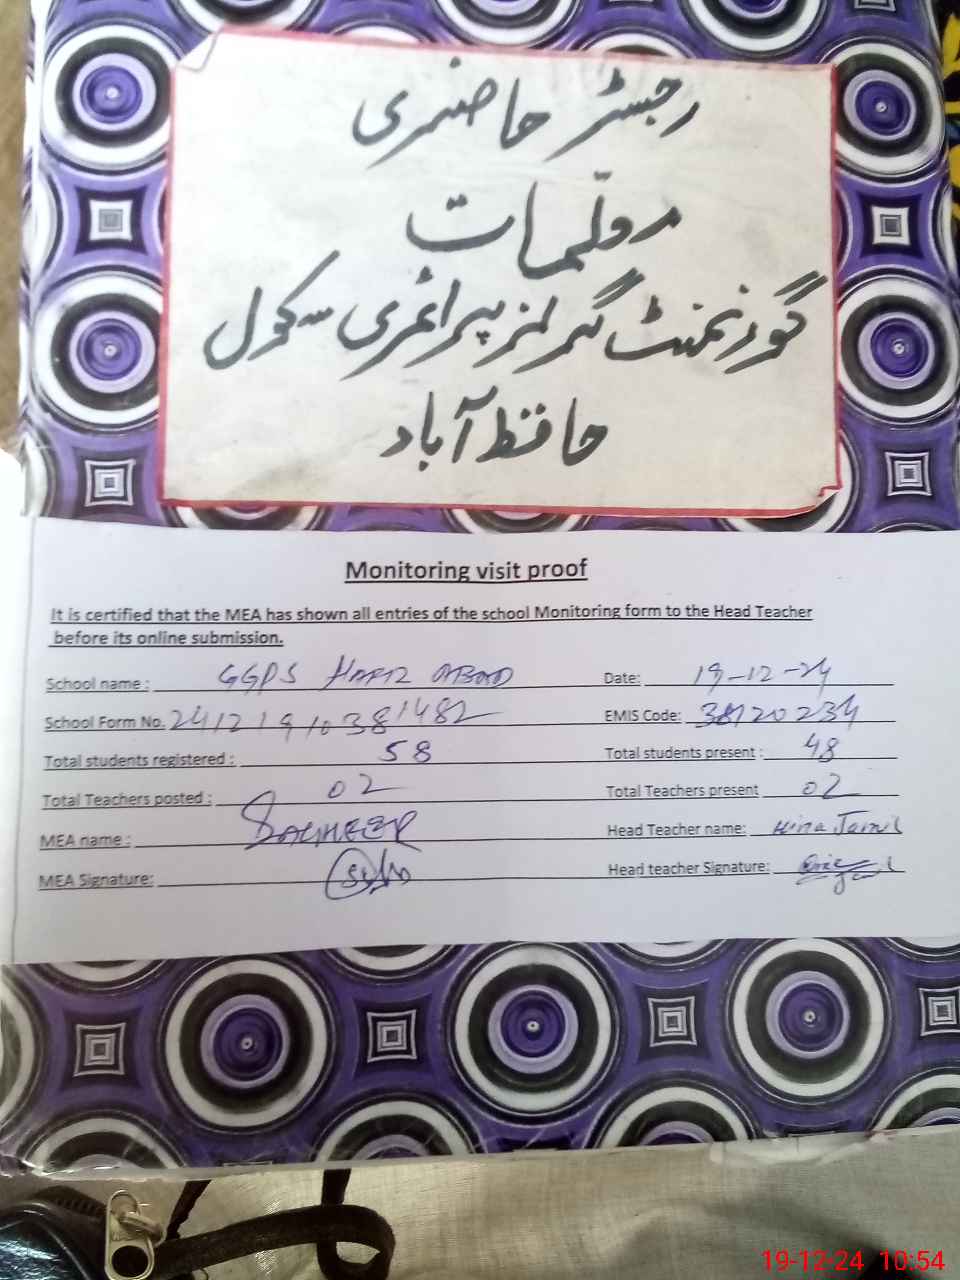 رجسٹر حاضری
معلّمات
گورنمنٹ گرلز پرائمری سکول
حافظ آباد
Monitoring visit proof
It is certified that the MEA has shown all entries of the school Monitoring form to the Head Teacher
before its online submission.
School name : GGPS HAFIZ ABAD Date: 19-12-24
School Form No. 24121910381482 EMIS Code: 38120234
Total students registered : 58 Total students present : 48
Total Teachers posted : 02 Total Teachers present 02
MEA name : Head Teacher name: Hina Jamil
MEA Signature: Head teacher Signature:
19-12-24 10:54